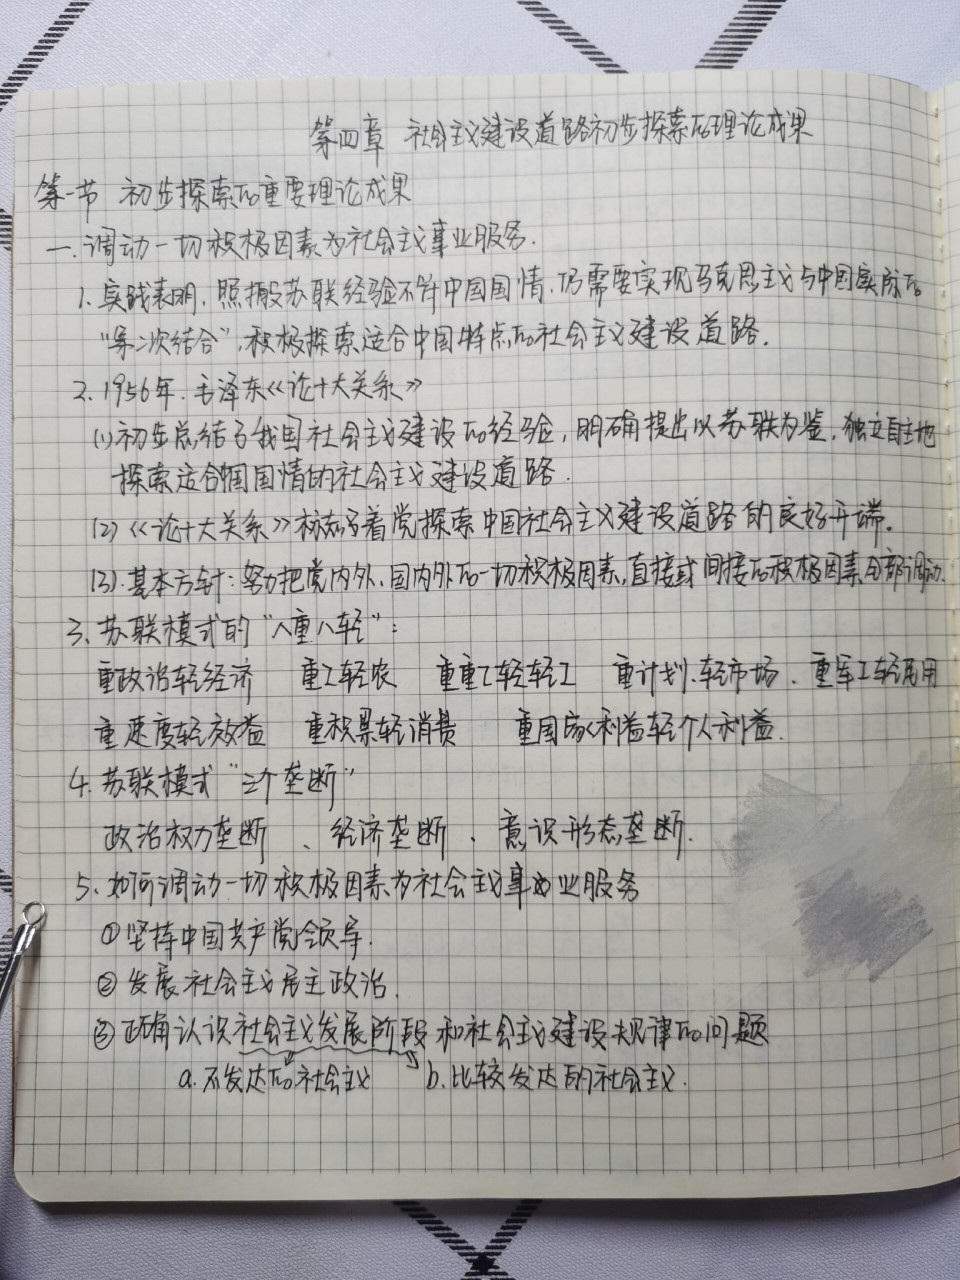 第四章 社会主义建设道路初步探索的理论成果
第一节 初步探索的重要理论成果
一.调动一切积极因素为社会主义事业服务.
1.实践表明,照搬苏联经验不符中国国情,仍需要实现马克思主义与中国实际的
“第二次结合”,积极探索适合中国特点的社会主义建设道路.
2.1956年.毛泽东《论十大关系》
(1)初步总结了我国社会主义建设的经验,明确提出以苏联为鉴,独立自主地
探索适合中国国情的社会主义建设道路.
(2)《论十大关系》标志着党探索中国社会主义建设道路的良好开端。
(3).基本方针:努力把党内外、国内外的一切积极因素,直接或间接的积极因素全部调动.
3.苏联模式的“八重八轻”:
重政治轻经济 重工轻农 重重工轻轻工 重计划、轻市场、重军工轻民用
重速度轻效益 重积累轻消费 重国家利益轻个人利益.
4.苏联模式“三个垄断”
政治权力垄断、经济垄断、意识形态垄断.
5.如何调动一切积极因素为社会主义事业服务
①坚持中国共产党领导.
②发展社会主义民主政治.
③正确认识社会主义发展阶段和社会主义建设规律的问题
a.不发达的社会主义 b.比较发达的社会主义.